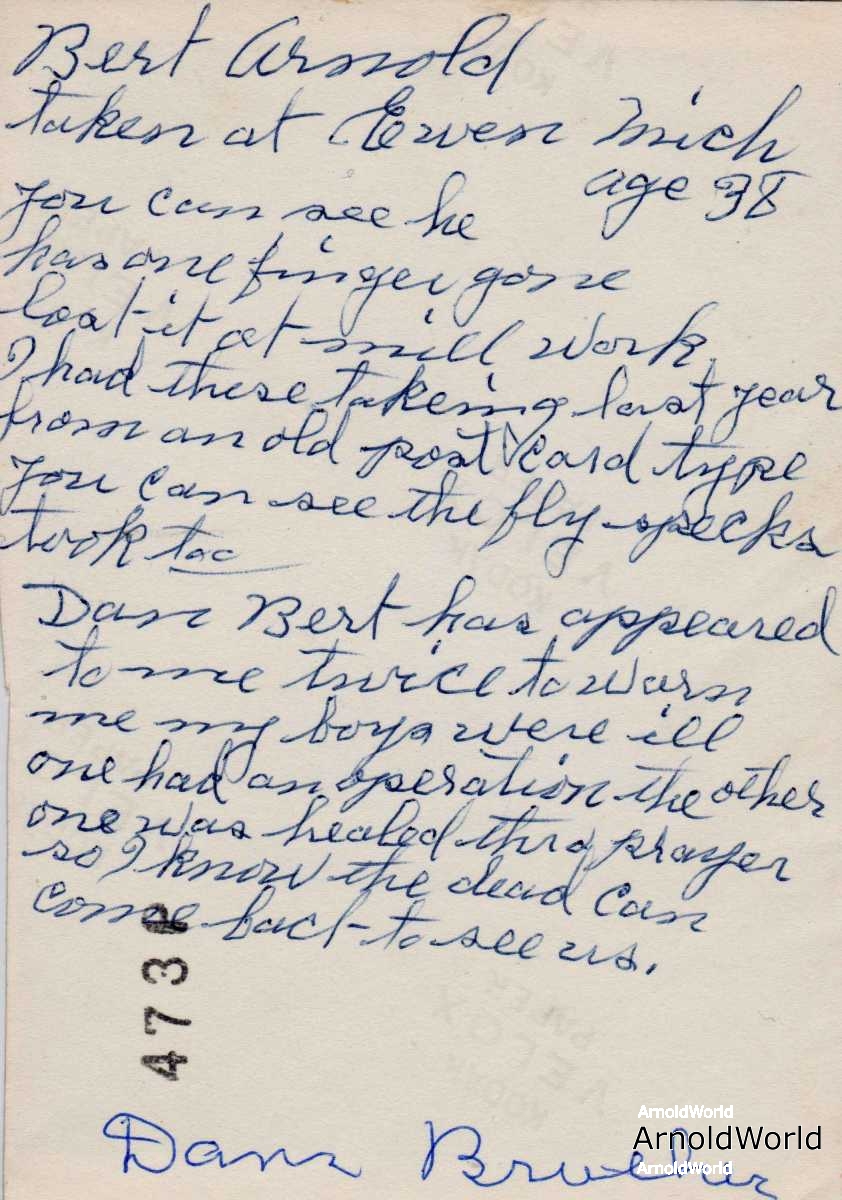 Bert Arnold
taken at Ewen Mich
age 38
you can see he
has one finger gone
lost it at mill work
I had these takeing last year
from an old post card type
you can see the fly specks
took too
Dan Bert has appeared
to me twice to warn
me my boys were ill
one had an operation the other
one was healed thro prayer
so I know the dead can
come back to see us.
473P
KODAK
VELOX
PAPER
Dan
ArnoldWorld
ArnoldWorld
ArnoldWorld